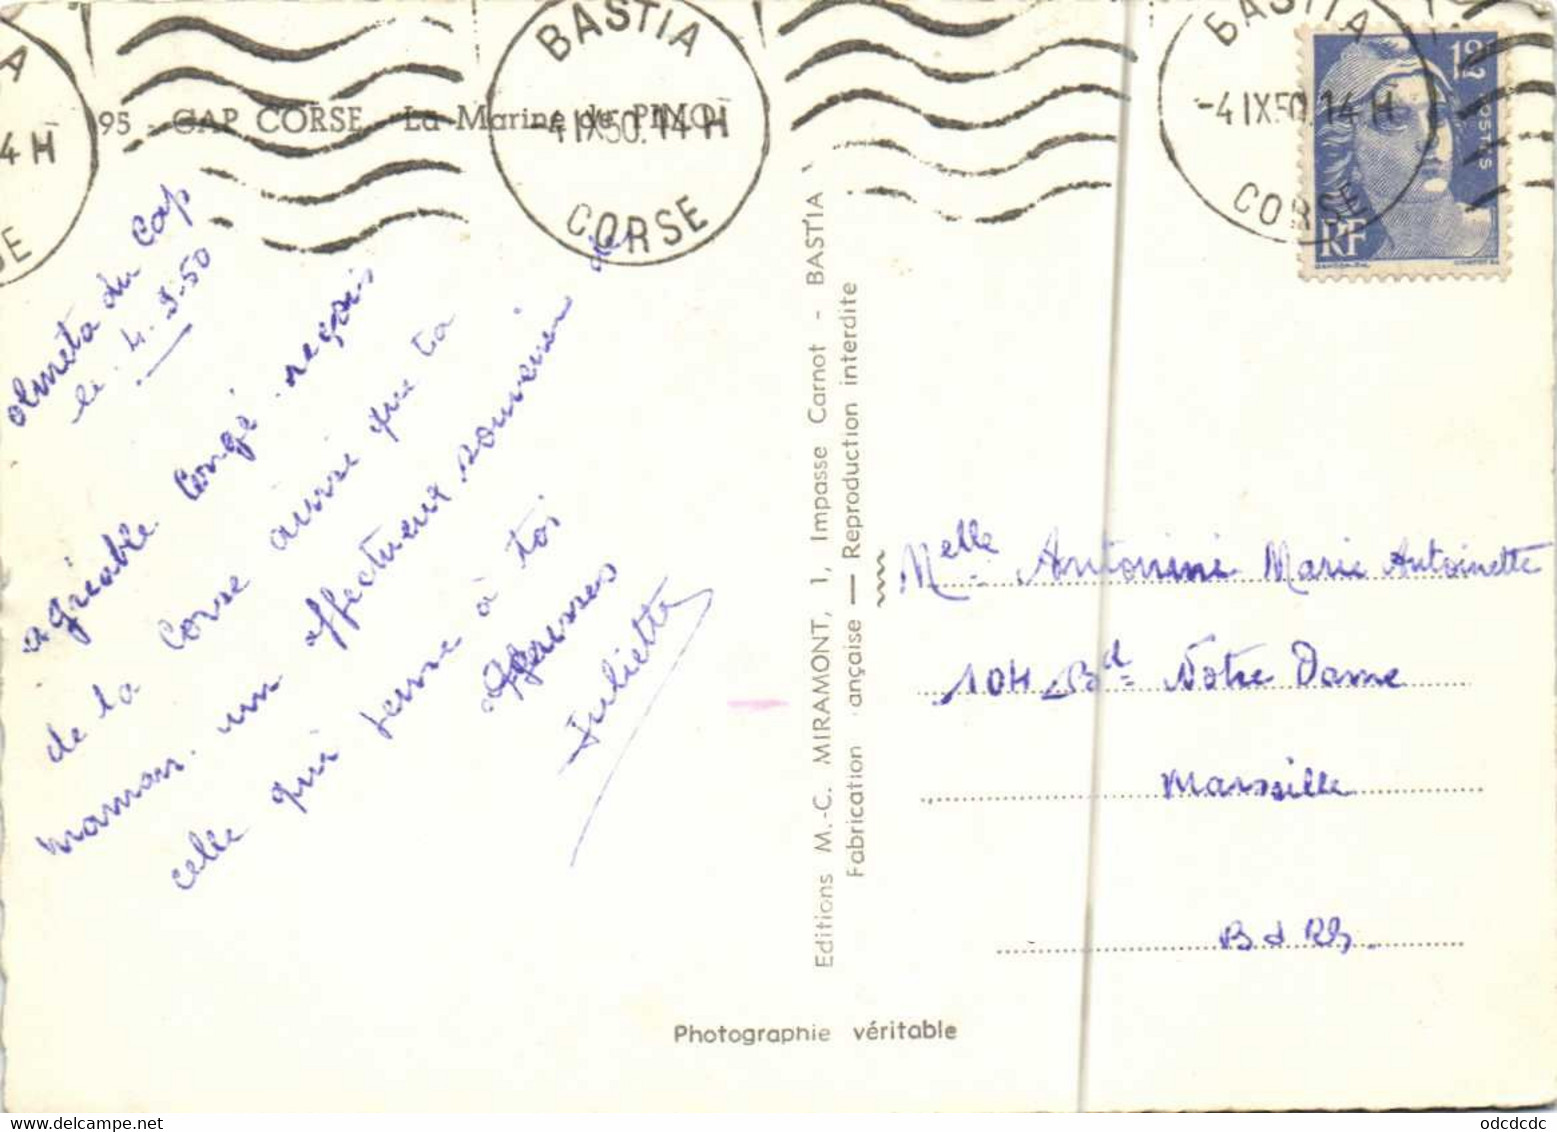 BASTIA
-4 IX50.14 H
CORSE
BASTIA
-4 IX50.14 H
CORSE
A
4 H
SE
12F
POSTES
RF
95 - CAP CORSE - La Marine de PINO
Olmeta du Cap
le. 4. 9-50
agréable congé. reçois
de la Corse ainsi que ta
maman. un affectueux souvenir de
celle qui pense à toi
Juliette
Editions M.-C. MIRAMONT, 1, Impasse Carnot - BASTIA
Fabrication ançaise — Reproduction interdite
Melle Antonini Marie Antoinette
104 Bd Notre Dame
Marseille
B d Rh.
Photographie véritable
https://www.delcampe.net
odcdcdc